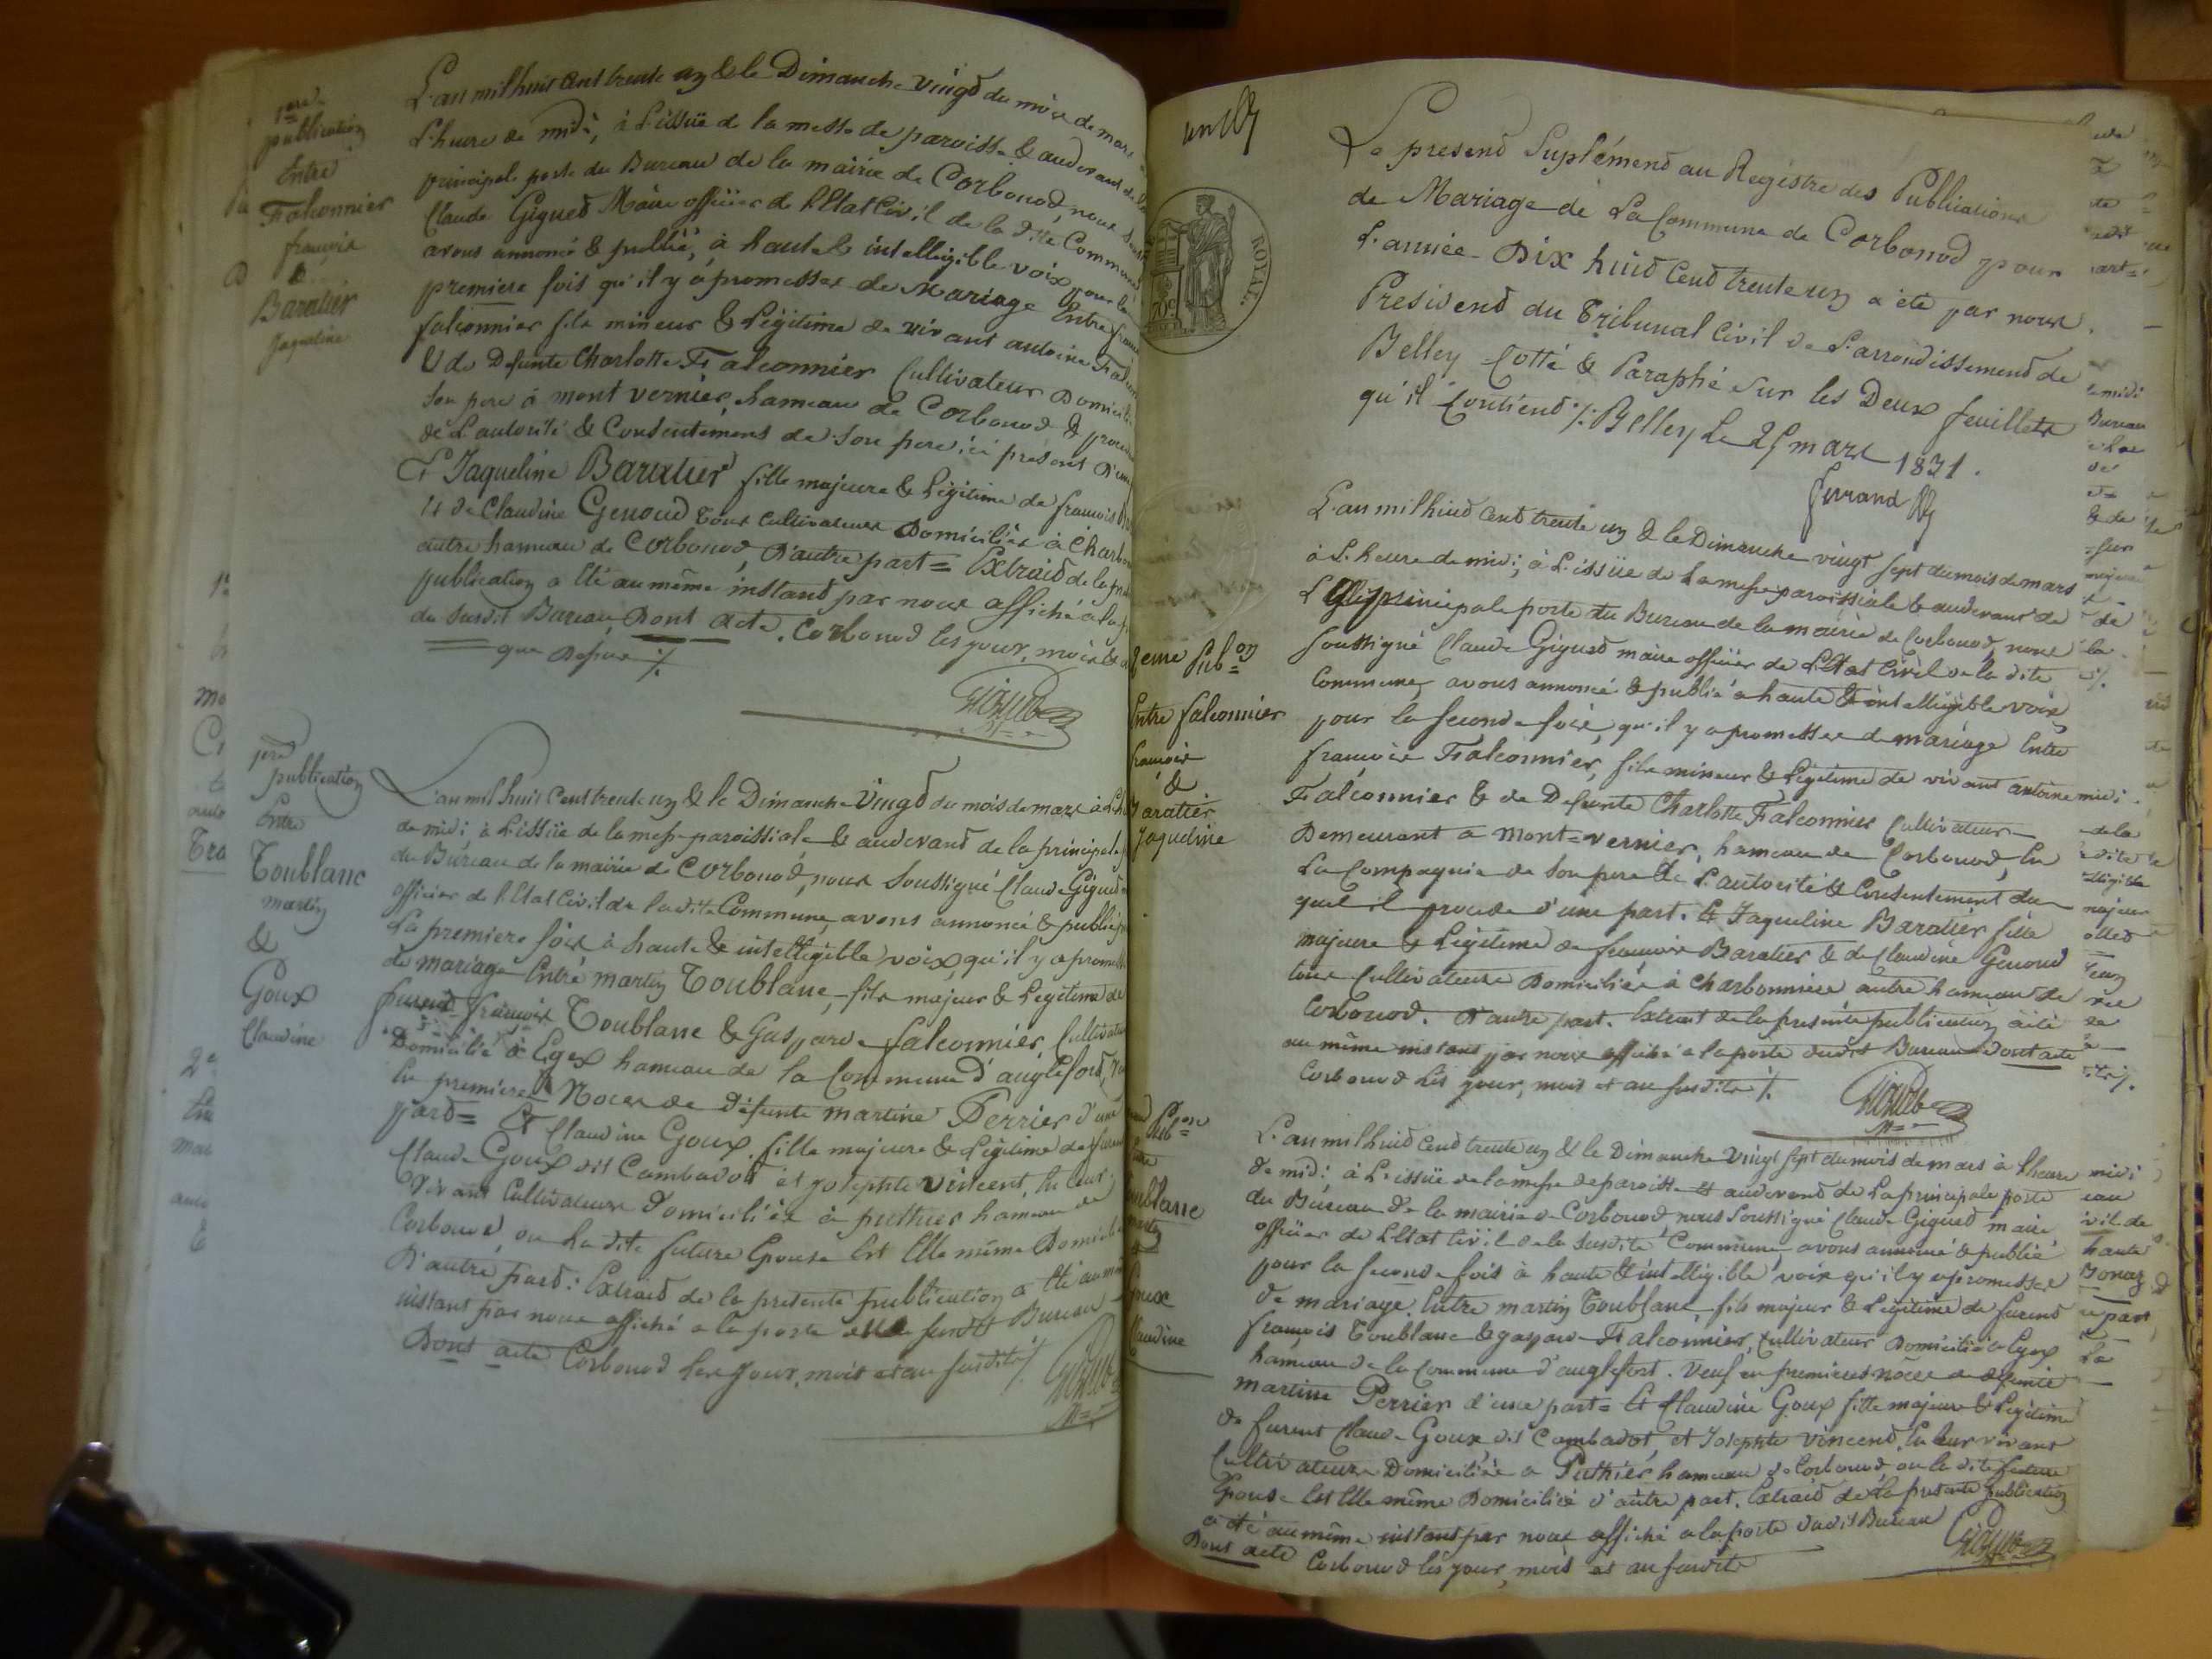 1ere
publication
Entre
Falconnier
françois
&
Baratier
Jaqueline
L'an mil huit cent trente un & le Dimanche vingt du mois de mars
L'heure de midi, à L'issüe de la messe de paroisse & audevant de la
principale porte du Bureau de la mairie de Corbonod, nous
Claude Gigued Maire officier de l'Etat Civil de la dite Commune
avons annoncé & publié, à haute & intelligible voix pour la
premiere fois qu'il y a promesses de Mariage Entre
falconnier fils mineur & Légitime de vivant antoine
& de Defunte Charlotte Falconnier Cultivateur
son pere à mont vernier, hameau de Corbonod &
de L'autorité & Consentement de son pere ici présent
Et Jaqueline Baratier fille majeure & Légitime de francois
& de Claudine Genoud tous cultivateurs Domiciliés à
autre hameau de Corbonod, D'autre part = Extraid de la
publication a été au même instant par nous affiché à la
du susdit Bureau, Dont acte. Corbonod les jour, mois &
que Dessus ./.
1ere
publication
Entre
Toublanc
martin
&
Goux
Claudine
L'an mil huit Cent trente un & le Dimanche Vingt du mois de mars à
de midi à L'issüe de la messe paroissiale & audevand de la principale
du Bureau de la mairie de Corbonod, nous Soussigné Claude Gigued
officier de l'Etat Civil de la dite Commune, avons annoncé & publié
La premiere fois à haute & intelligible voix, qu'il y a
de mariage Entre martin Toublanc, fils majeur & Légitime de
furend françois Toublanc & Gasparde falconnier,
Domicilié à Eges hameau de la Commune d'angleford,
En premieres Noces de Défunte martine Perrier d'une
pard = Et Claudine Goux fille majeure & Légitime de
Claude Goux dit Cambadot et josephte vincent, En leur
Vivant Cultivateurs Domiciliés à puthier hameau de
Corbonod, ou La dite future Epouse Est Elle même
D'autre pard : Extraid de la presente publication a été au
instant par nous affiché a la porte du susdit Bureau
Dont acte Corbonod Les jour, mois et an susdits ./.
ROYAL.
70c
Le presend Suplémend au Registre des Publications
de Mariage de La Commune de Corbonod pour
L'année Dix huid Cend trente un a été par nous
Présidend du Tribunal Civil de L'arrondissemend de
Belley Cotté & Paraphé sur les Deux feuillets
qu'il Contiend ./. Belley le 25 mars 1831.
2eme Pubon
Entre falconnier
françois
&
Baratier
Jaqueline
L'an mil huid Cend trente un & le Dimanche vingt sept du mois de mars
à L'heure de midi, à L'issüe de La messe paroissiale & audevant de
La principale porte du Bureau de la mairie de Corbonod, nous
soussigné Claude Gigued maire officier de L'Etat Civil de la dite
Commune, avons annoncé & publié à haute & intelligible voix
pour la seconde fois, qu'il y a promesses de mariage Entre
françois Falconnier, fils mineur & Légitime de vivant antoine
Falconnier & de Defunte Charlotte Falconnier Cultivateur
Demeurant a Mont=vernier, hameau de Corbonod, En
La Compagnie de son pere & de L'autorité & Consentement du
quel il procede d'une part. Et Jaqueline Baratier fille
majeure & Légitime de françois Baratier & de Claudine Genoud
tous Cultivateurs Domiciliés à Charbonniere autre hameau de
Corbonod. D'autre part. Extrait de la presente publication a été
au même instant par nous affiché a la porte dudit Bureau Dont acte
Corbonod Les jour, mois et an susdits ./.
Toublanc
Goux
Claudine
L'an mil huid Cend trente un & le Dimanche vingt sept du mois de mars à l'heure
de midi à L'issüe de la messe de paroisse et audevand de La principale porte
du Bureau de la mairie de Corbonod nous soussigné Claude Gigued maire
officier de L'Etat Civil de la susdite Commune, avons annoncé & publié
pour la seconde fois à haute & intelligible voix qu'il y a promesses
de mariage Entre martin Toublanc fils majeur & Légitime de furend
françois Toublanc & gasparde Falconnier, Cultivateur Domicilié à Eges
hameau de la Commune d'anglefort. Veuf en premieres noces de defunte
martine Perrier d'une part = Et Claudine Goux fille majeure & Légitime
de furent Claude Goux dit Cambadot, et Josephte Vincend, En leur vivant
Cultivateurs Domiciliés a Puthier hameau de Corbonod ou la dite future
Epouse Est Elle même Domiciliée d'autre part. Extraid de la presente publication
a été au même instant par nous affiché a la porte dudit Bureau
Dont acte Corbonod les jour, mois et an susdits